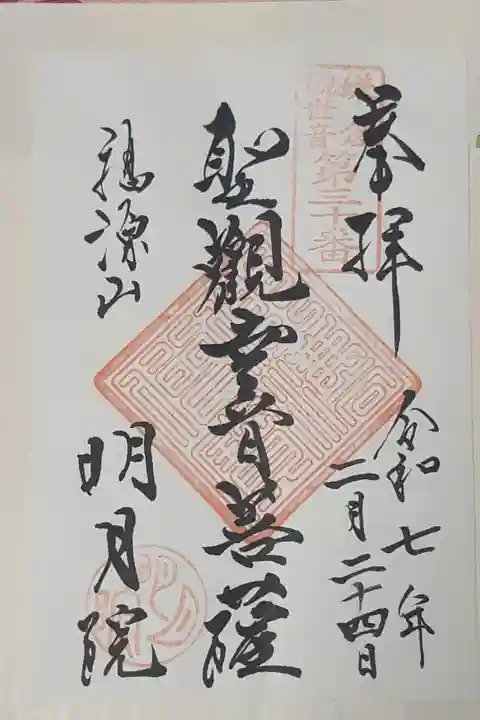 奉拝
鎌倉
観世音第三十番
令和七年
二月二十四日
聖觀世音菩薩
福源山
明月院